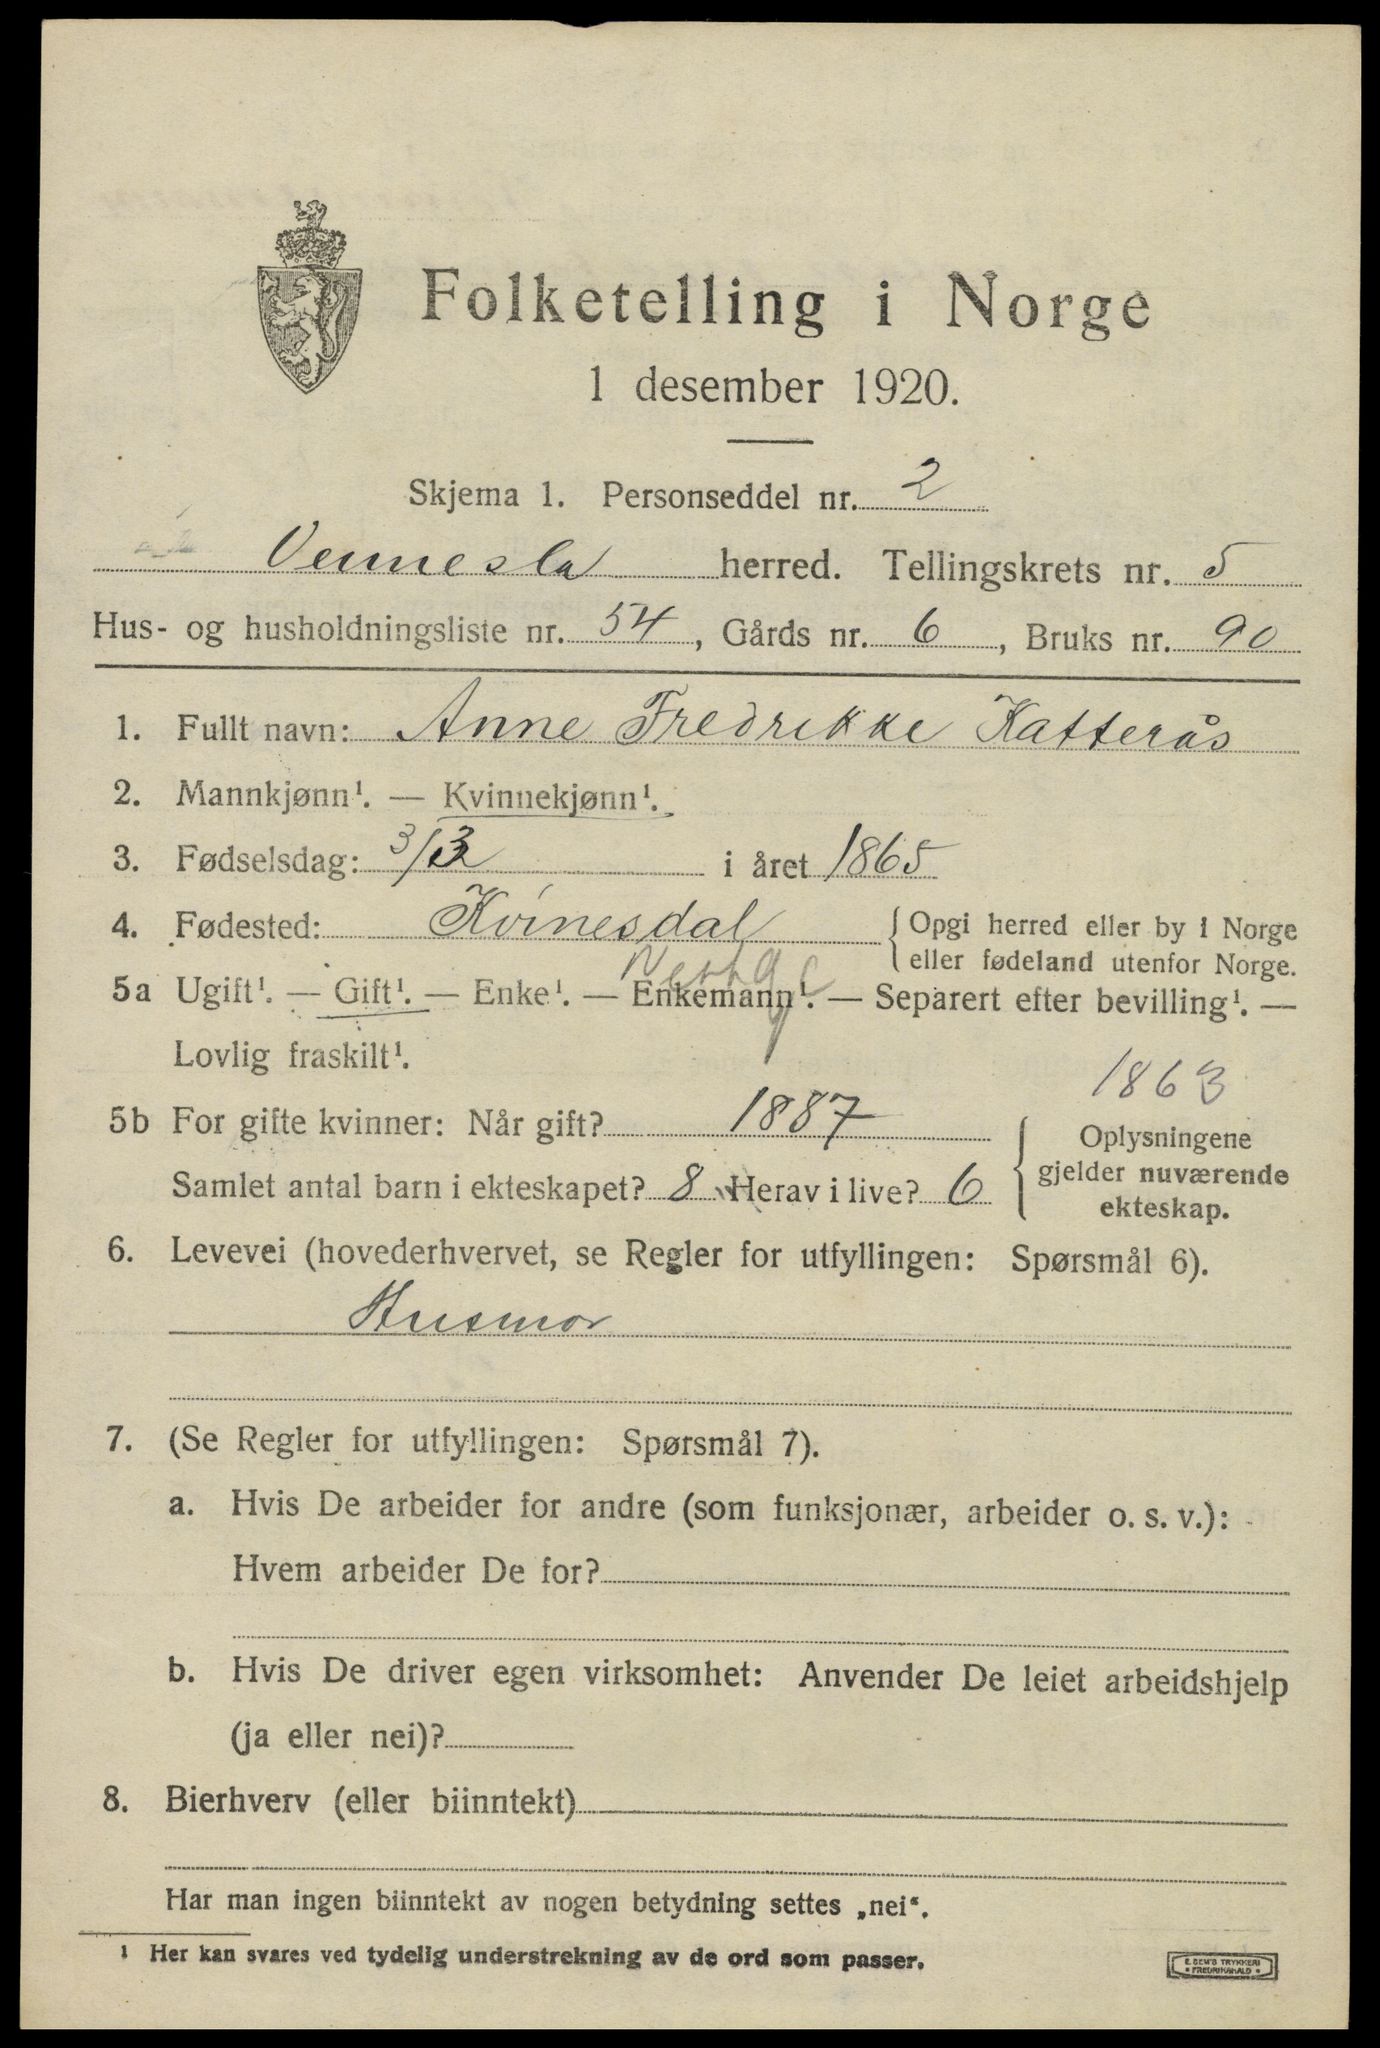 Folketelling i Norge
1 desember 1920.
Skjema 1. Personseddel nr. 2
Vennesla herred. Tellingskrets nr. 5
Hus- og husholdningsliste nr. 54, Gårds nr. 6, Bruks nr. 90
1. Fullt navn: Anne Fredrikke Katterås
2. Mannkjønn¹. — Kvinnekjønn¹.
3. Fødselsdag: 3/3 i året 1865
4. Fødested: Kvinesdal { Opgi herred eller by i Norge
eller fødeland utenfor Norge.
Norge
5a Ugift¹. — Gift¹. — Enke¹. — Enkemann¹. — Separert efter bevilling¹. —
Lovlig fraskilt¹.
1863
5b For gifte kvinner: Når gift? 1887
Samlet antal barn i ekteskapet? 8 Herav i live? 6
{ Oplysningene
gjelder nuværende
ekteskap.
6. Levevei (hovederhvervet, se Regler for utfyllingen: Spørsmål 6).
Husmor
7. (Se Regler for utfyllingen: Spørsmål 7).
a. Hvis De arbeider for andre (som funksjonær, arbeider o. s. v.):
Hvem arbeider De for?
b. Hvis De driver egen virksomhet: Anvender De leiet arbeidshjelp
(ja eller nei)?
8. Bierhverv (eller biinntekt)
Har man ingen biinntekt av nogen betydning settes „nei“.
¹ Her kan svares ved tydelig understrekning av de ord som passer.
E. SEM'S TRYKKERI
• FREDRIKSHALD •